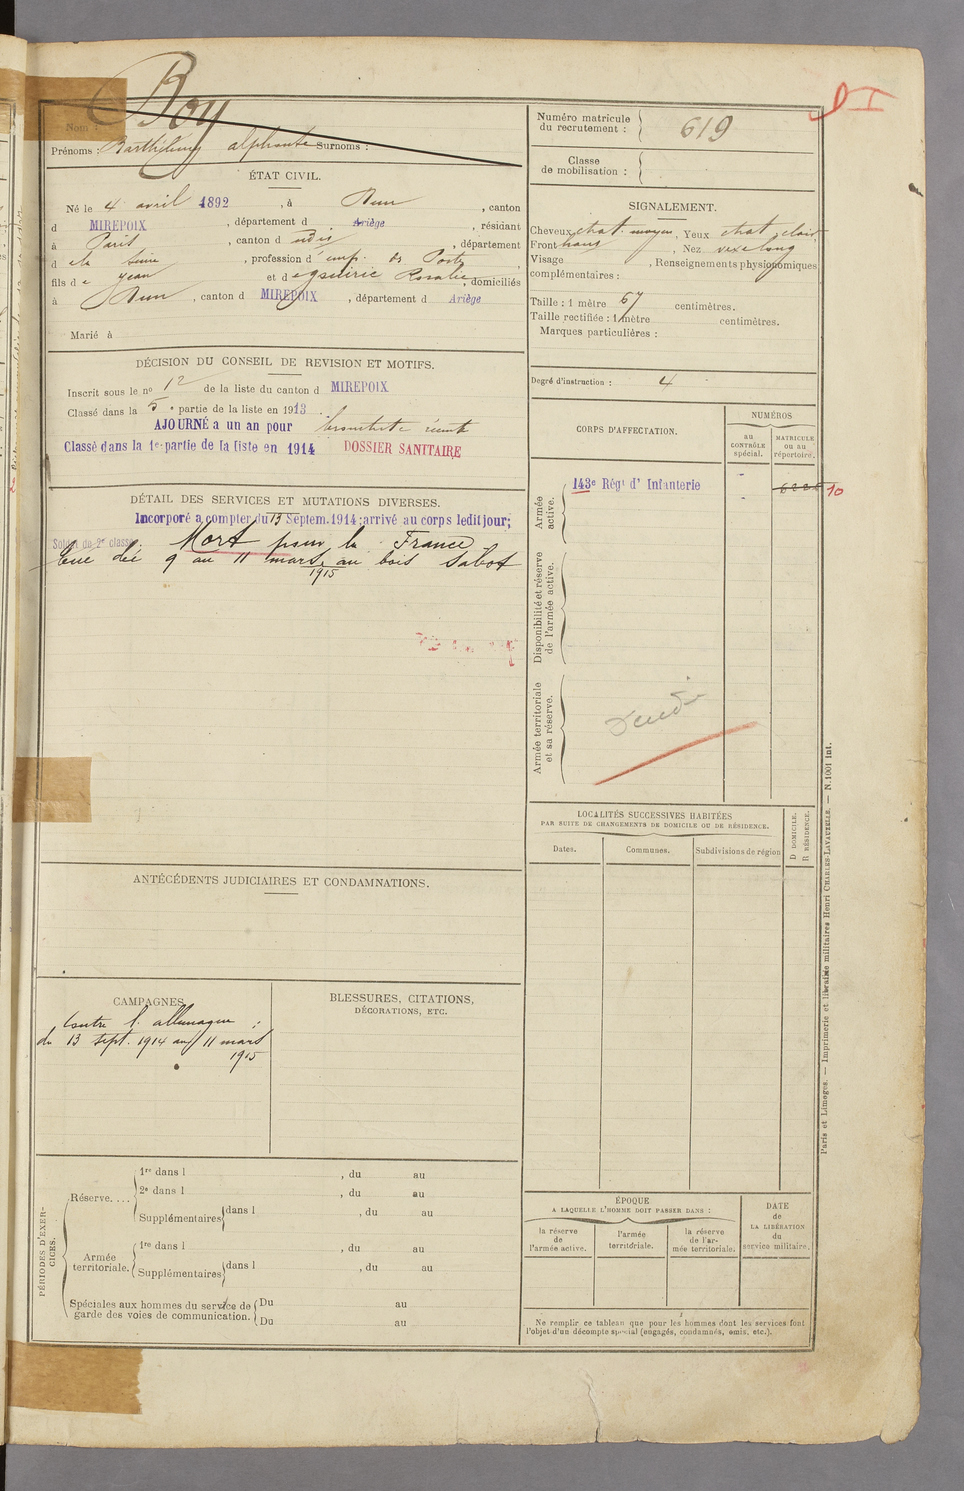 Nom : Boy
Prénoms : Barthélemy alphonse Surnoms :
ÉTAT CIVIL.
Né le 4 avril 1892, à Dun, canton
d MIREPOIX, département d Ariège, résidant
à Paris, canton d udis, département
d ela Seine, profession d emp. des Postes,
fils de Jean et d Rosalie, domiciliés
à Dun, canton d MIREPOIX, département d Ariège
Marié à
DÉCISION DU CONSEIL DE REVISION ET MOTIFS.
Inscrit sous le no 12 de la liste du canton d MIREPOIX
Classé dans la 5e partie de la liste en 1913.
AJOURNÉ a un an pour bronchite récente
Classé dans la 1e partie de la liste en 1914 DOSSIER SANITAIRE
DÉTAIL DES SERVICES ET MUTATIONS DIVERSES.
Incorporé a compter du 13 Septem. 1914; arrivé au corps ledit jour;
Soldat de 2e classe. Mort pour la France
Tué du 9 au 11 mars au bois Sabot
1915
ANTÉCÉDENTS JUDICIAIRES ET CONDAMNATIONS.
CAMPAGNES.
Contre l'allemagne :
du 13 sept. 1914 au 11 mars
1915
BLESSURES, CITATIONS,
DÉCORATIONS, ETC.
PÉRIODES D'EXERCICES.
Réserve....
1re dans l , du au
2e dans l , du au
Supplémentaires dans l , du au
Armée territoriale.
1re dans l , du au
Supplémentaires dans l , du au
Spéciales aux hommes du service de garde des voies de communication.
Du au
Du au
Numéro matricule
du recrutement : 619
Classe
de mobilisation :
SIGNALEMENT.
Cheveux chat. moyen, Yeux chat. clair
Front haut, Nez vexe long
Visage , Renseignements physionomiques
complémentaires :
Taille : 1 mètre 67 centimètres.
Taille rectifiée : 1 mètre centimètres.
Marques particulières :
Degré d'instruction : 4
CORPS D'AFFECTATION.
NUMÉROS
au CONTRÔLE spécial.
MATRICULE ou au répertoire.
Armée active.
143e Régt d'Infanterie
10
Disponibilité et réserve de l'armée active.
Armée territoriale et sa réserve.
LOCALITÉS SUCCESSIVES HABITÉES
PAR SUITE DE CHANGEMENTS DE DOMICILE OU DE RÉSIDENCE.
Dates.
Communes.
Subdivisions de région
D DOMICILE.
R RÉSIDENCE.
ÉPOQUE
A LAQUELLE L'HOMME DOIT PASSER DANS :
la réserve de l'armée active.
l'armée territoriale.
la réserve de l'armée territoriale.
DATE
de
LA LIBÉRATION
du
service militaire.
Ne remplir ce tableau que pour les hommes dont les services font
l'objet d'un décompte spécial (engagés, condamnés, omis, etc.).
Paris et Limoges. — Imprimerie et librairie militaires Henri CHARLES-LAVAUZELLE. — N. 1001 int.